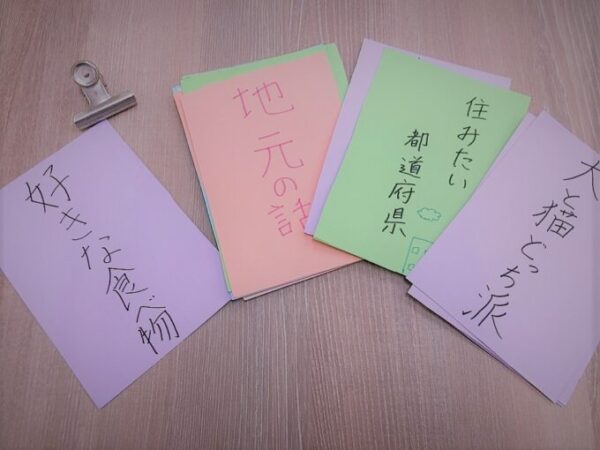 好きな食べ物
地元の話
住みたい
都道府県
犬と猫どっち派